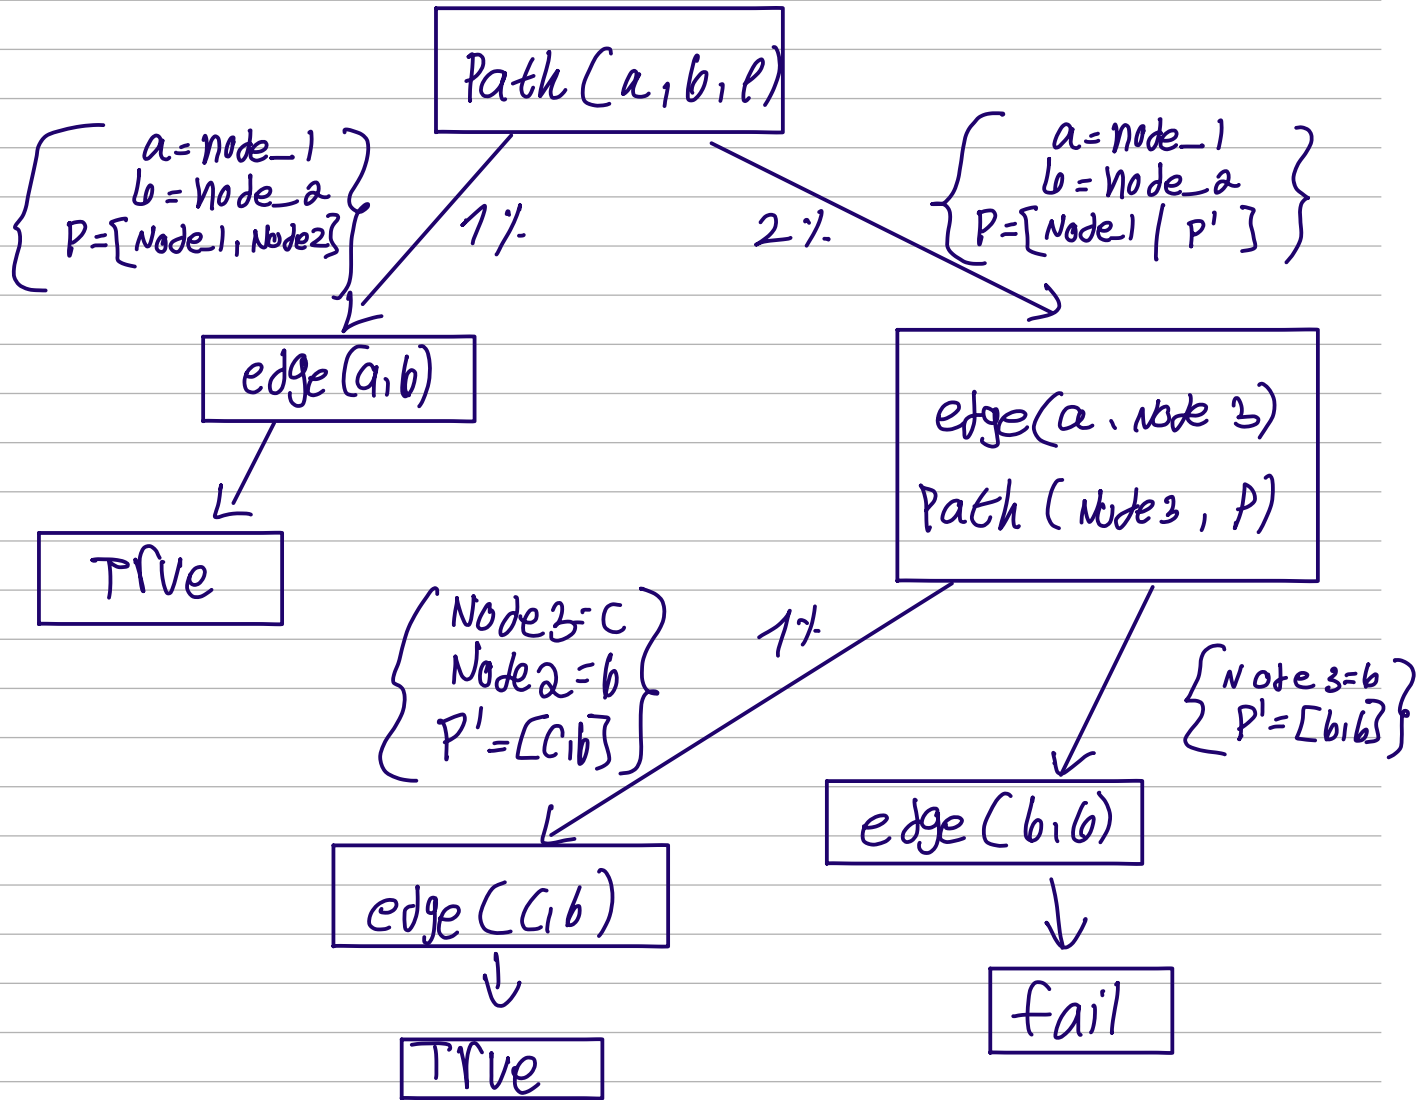 Path(a,b,P)
a=node_1
b=node_2
P=[Node_1, Node2]
1%
2%
a=node_1
b=node_2
P=[Node_1 / P' ]
edge(a,b)
edge(a, Node 3)
Path (Node3, P)
True
Node3=C
Node2=b
P'=[C,b]
1%
Node3=b
P'=[b,b]
edge(b,b)
edge(C,b)
fail
True